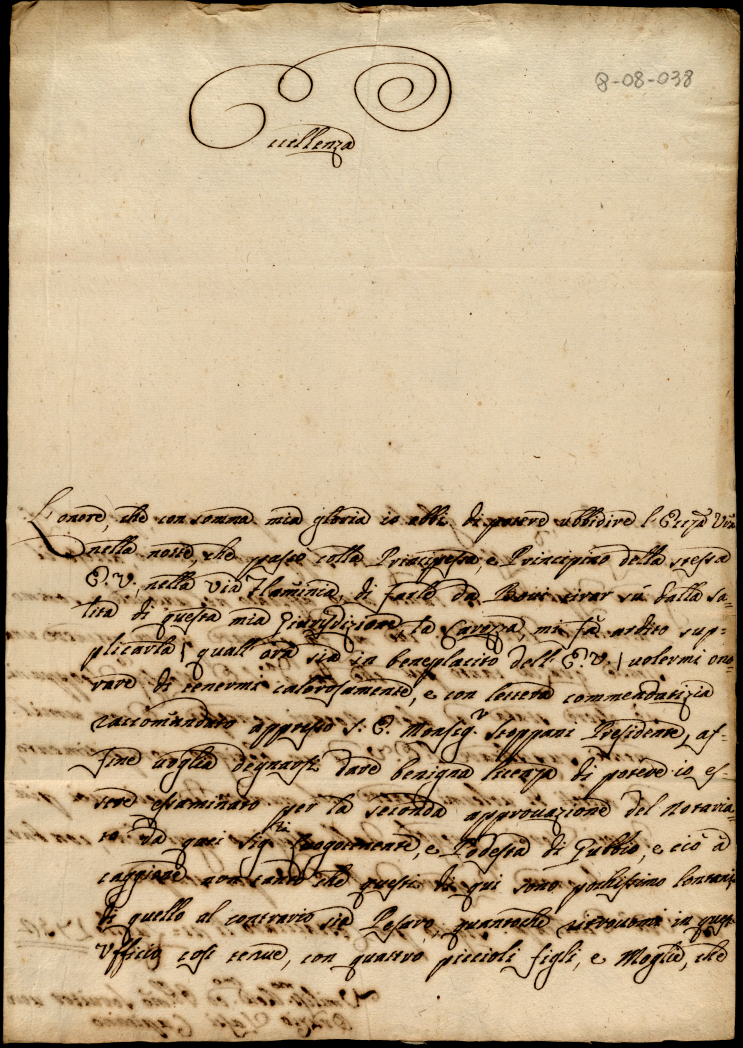 Q-08-038
Eccellenza
L'onore, che con somma mia gloria io ebbi di potere ubbidire l'Ecc.za V.ra
nella notte, che passò colla Principessa, e Principino della stessa
E. V. nella Via Flaminia, di farle da Bovi tirar sù dalla sa-
lita di questa mia Giurisdizione la Carozza, mi fà ardito sup-
plicarla / quall'ora sia in beneplacito dell'E. V. / volermi ono-
rare di tenermi calorosamente, e con lettera commendatizia
raccomandato appresso S. E. Monsig.r Stoppani Presidente, af-
fine voglia degnarsi dare benigna licenza di potere io es-
sere essaminato per la seconda approvazione del notaria-
to da quei Sig.ri Luogotenente, e Podestà di Gubbio, e ciò à
caggione non tanto che questi di qui sono pochissimo lontani,
di quello al contrario sia Pesaro, quantoche ritrovomi in quest'
Ufficio così tenue, con quattro piccioli figli, e Moglie, che